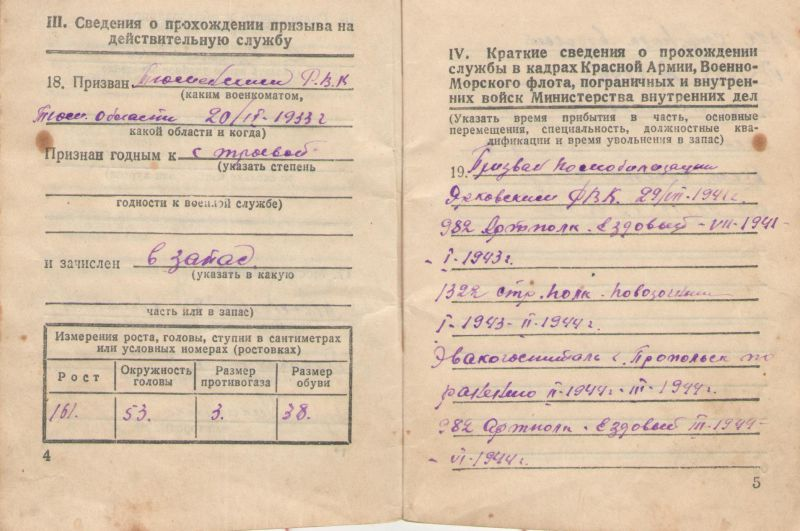 III. Сведения о прохождении призыва на
действительную службу
18. Призван Р.В.К
(каким военкоматом,
области 20/IX-1933 г
какой области и когда)
Признан годным к строевой
(указать степень
годности к военной службе)
и зачислен в запас
(указать в какую
часть или в запас)
Измерения роста, головы, ступни в сантиметрах
или условных номерах (ростовках)
Рост Окружность головы Размер противогаза Размер обуви
161. 53. 3. 38.
4
IV. Краткие сведения о прохождении
службы в кадрах Красной Армии, Военно-
Морского флота, пограничных и внутрен-
них войск Министерства внутренних дел
(Указать время прибытия в часть, основные
перемещения, специальность, должностные ква-
лификации и время увольнения в запас)
19. Призван по мобилизации
РВК. 29/VII-1941 г.
982 Артполк - Ездовый - VII-1941-
- I-1943 г.
1322 стр. полк - повозочный
I-1943 - II-1944 г.
Эвакогоспиталь г. по
ранению II-1944 - III-1944 г.
982 Артполк - Ездовый III-1944-
- VI-1944 г.
5